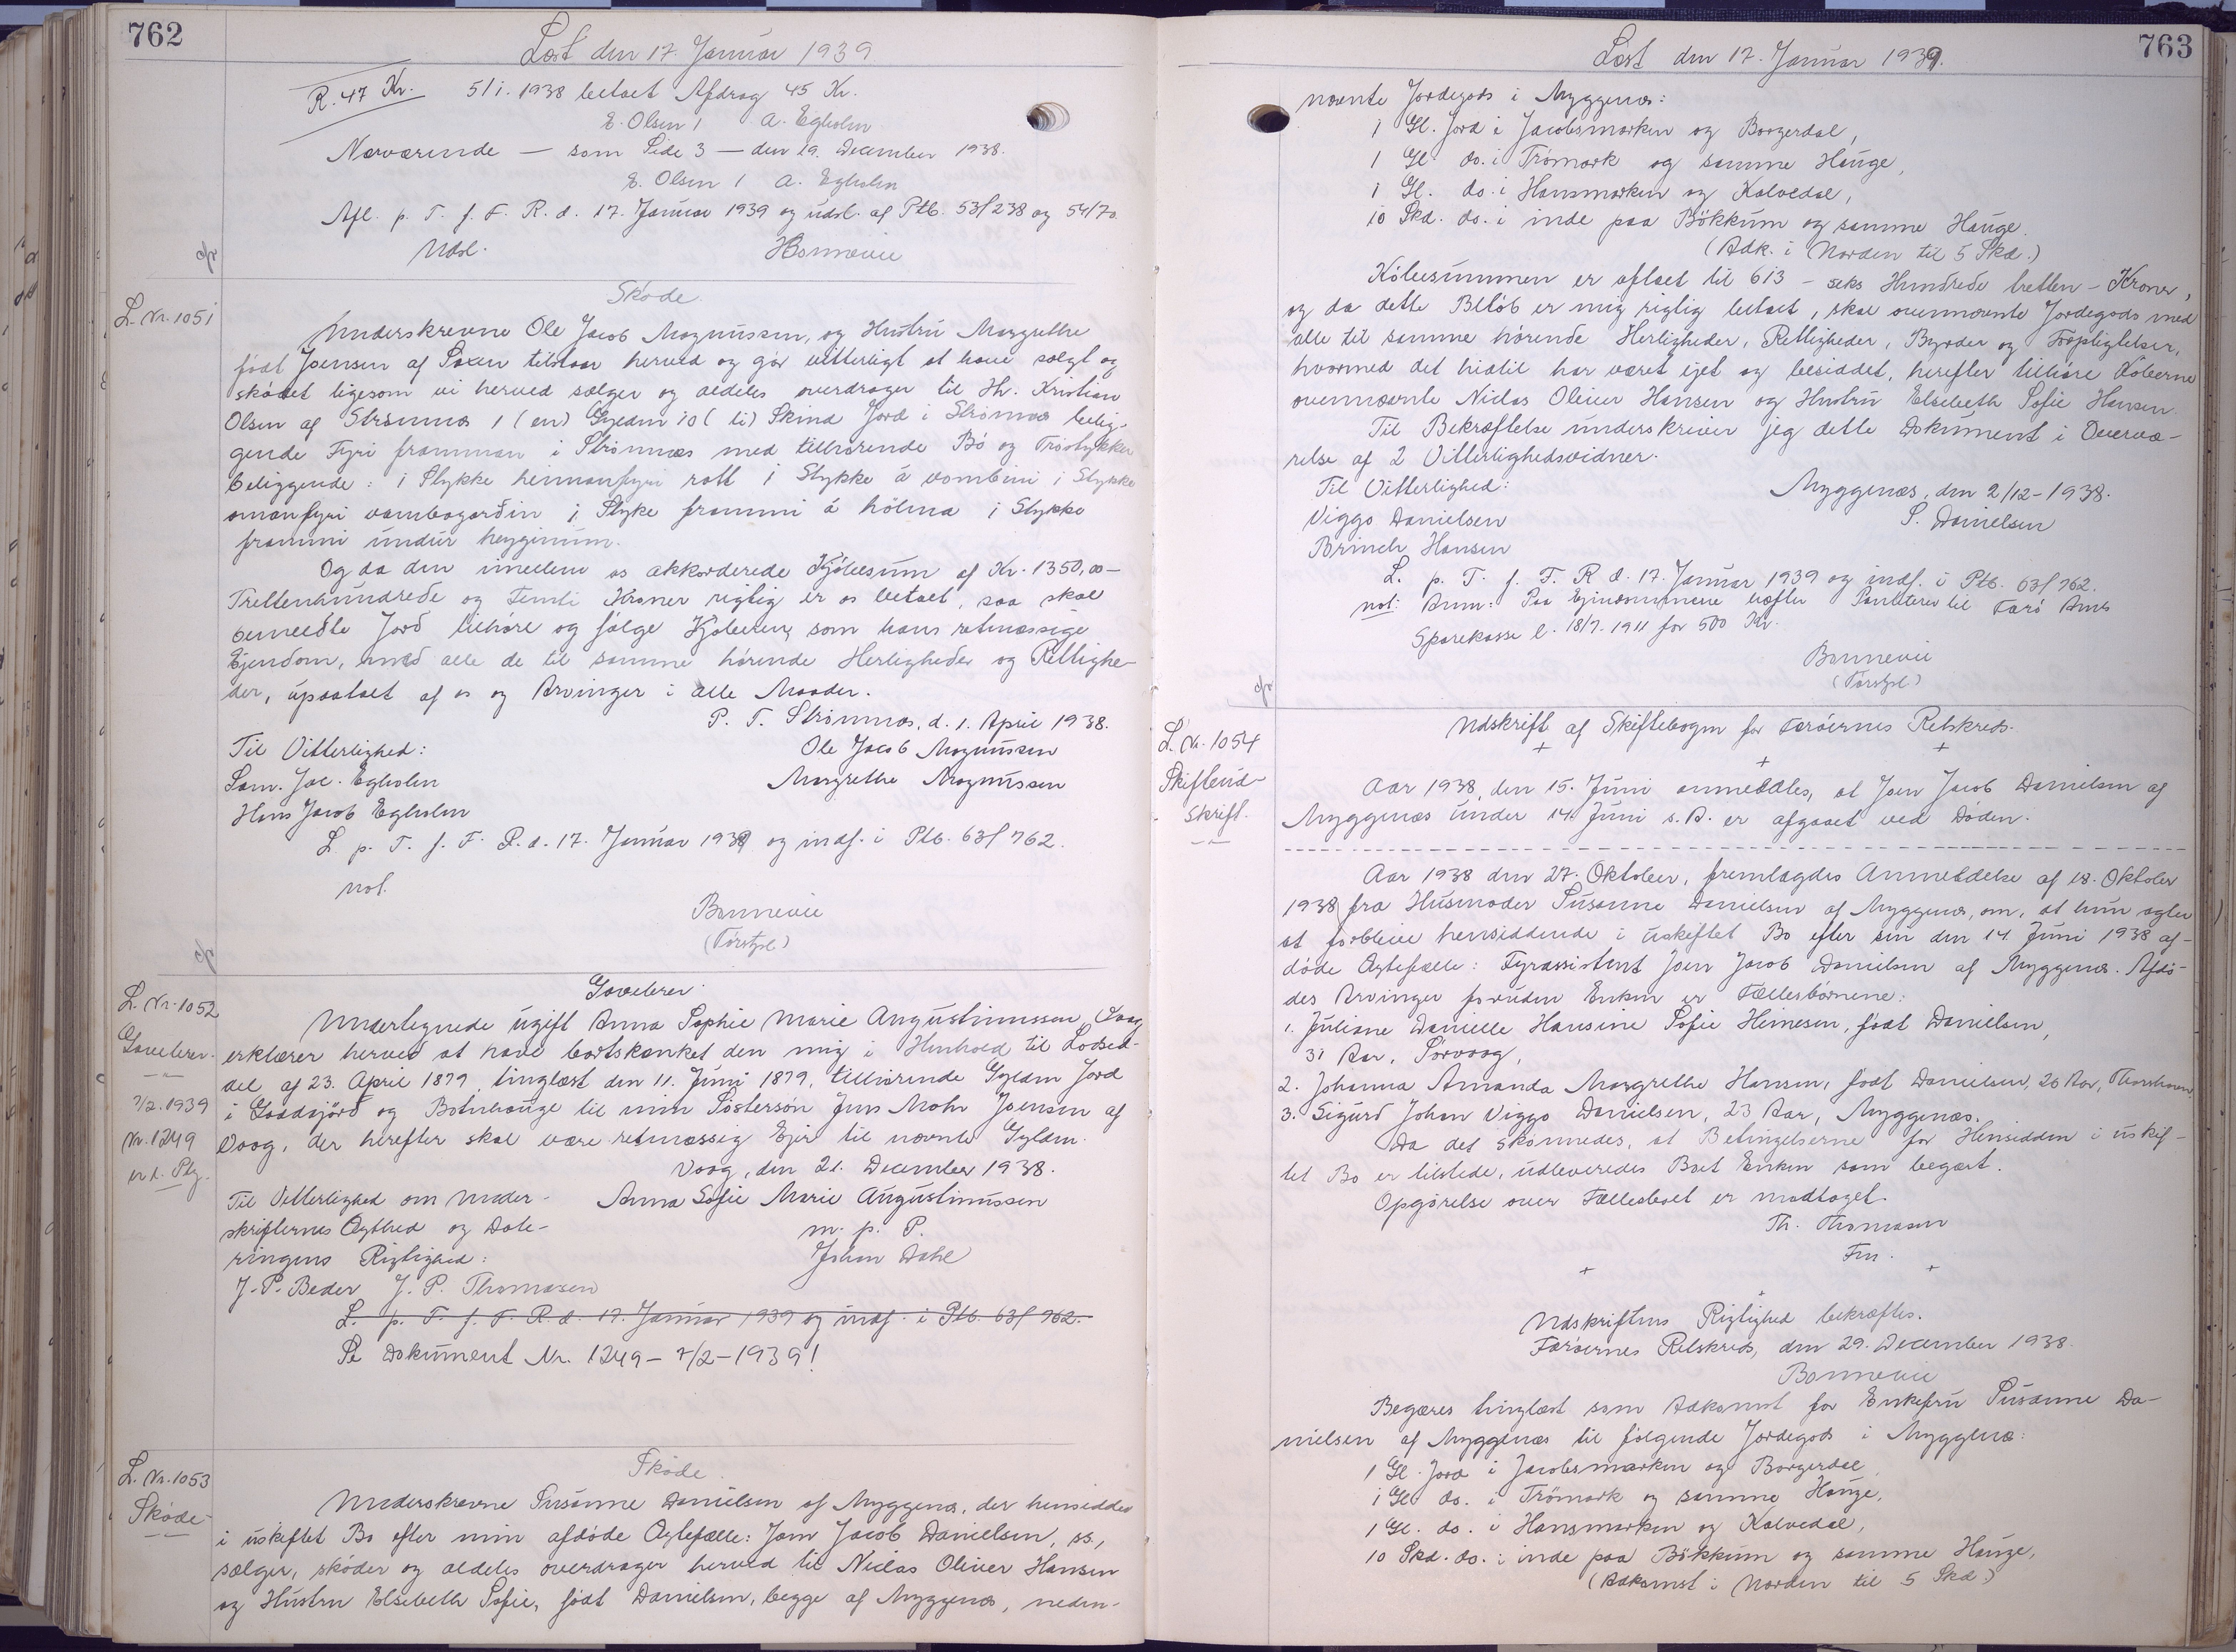 762
Læst den 17. Januar 1939
R. 47 Kr. 5/1. 1938 betalt Afdrag 45 Kr.
E. Olsen / A. Egholm
Nærværende — som Side 3 — den 19. December 1938.
E. Olsen / A. Egholm
Afl. p. T. f. F. R. d. 17. Januar 1939 og udsl. af Ptb. 53/238 og 54/70.
Udsl. Bonnevie
L. Nr. 1051
Skøde.
Underskrevne Ole Jacob Magnussen, og Hustru Margrethe
født Joensen af Saxen tilstaar herved og gør vitterligt at have solgt og
skødet ligesom vi herved sælger og aldeles overdrager til Hr. Kristian
Olsen af Strømnæs 1 (en) Gylden 10 (ti) Skind Jord i Strømnæs belig-
gende Fyri framman i Strømnæs med tilhørende Bø og Trøstykker
beliggende: 1 Stykke heimanfyri rott 1 Stykke á vombini 1 Stykke
omanfyri vambagarðin 1 Styke frammi á hólma 1 Stykke
frammi undur heygnum.
Og da den imellem os akkorderede Kjøbesum af Kr. 1350,00 —
Trettenhundrede og Femti Kroner rigtig er os betalt, saa skal
bemeldte Jord tilhøre og følge Kjøberen, som hans retmæssige
Ejendom, med alle de til samme hørende Herligheder og Rettighe-
der, upaatalt af os og Arvinger i alle Maader.
P. T. Strømnæs, d. 1. April 1938.
Til Vitterlighed: Ole Jacob Magnussen
Sam. Jac. Egholm Margrethe Magnussen
Hans Jacob Egholm
L. p. T. f. F. R. d. 17. Januar 1939 og indf. i Ptb. 63/762.
not.
Bonnevie
(Førstpl.)
L. Nr. 1052
Gavebrev.
7/2. 1939
Nr. 1249
Gavebrev.
Undertegnede ugift Anna Sophie Marie Augustinussen, Vaag
erklærer herved at have bortskænket den mig i Henhold til Lodsed-
del af 23. April 1879, tinglæst den 11. Juni 1879, tilhørende Gylden Jord
i og Botnhauge til min Søstersøn Jens Mohr Joensen af
Vaag, der herefter skal være retmæssig Ejer til nævnte Gylden.
Vaag, den 21. December 1938.
Til Vitterlighed om Under- Anna Sofie Marie Augustinussen
skrifternes Ægthed og Date- m. p. P.
ringens Rigtighed: Johan Dahl
J. P. Beder J. P. Thomasen
L. p. T. f. F. R. d. 17. Januar 1939 og indf. i Ptb. 63/762.
Se Dokument Nr. 1249 - 7/2 - 1939!
L. Nr. 1053
Skøde
Skøde.
Underskrevne Susanne Danielsen af Myggenæs, der hensidder
i uskiftet Bo efter min afdøde Ægtefælle: Joen Jacob Danielsen, ss.,
sælger, skøder og aldeles overdrager herved til Niclas Oliver Hansen
og Hustru Elsebeth Sofie, født Danielsen, begge af Myggenæs, neden-
763
Læst den 17. Januar 1939.
nævnte Jordegods i Myggenæs:
1 Gl. Jord i Jacobsmarken og Borgerdal,
1 Gl. do. i Trømark og samme Hauge,
1 Gl. do. i Hansmarken og Kalvedal,
10 Skd. do. i inde paa Bökkum og samme Hauge.
(Adk. i Norden til 5 Skd.)
Købesummen er aftalt til 613 — seks Hundrede tretten — Kroner,
og da dette Beløb er mig rigtig betalt, skal ovennævnte Jordegods med
alle til samme hørende Herligheder, Rettigheder, Byrder og Forpligtelser,
hvormed det hidtil har været ejet og besiddet, herefter tilhøre Køberne
ovennævnte Niclas Oliver Hansen og Hustru Elsebeth Sofie Hansen.
Til Bekræftelse underskriver jeg dette Dokument i Overvæ-
relse af 2 Vitterlighedsvidner.
Til Vitterlighed: Myggenæs, den 2/12 - 1938.
Viggo Danielsen S. Danielsen
Brinch Hansen
L. p. T. f. F. R. d. 17. Januar 1939 og indf. i Ptb. 63/762.
not: Anm: Paa Ejendommene hæfter Panteret til Færø Amts
Sparekasse l. 18/7. 1911 for 500 Kr.
Bonnevie
(Førstpl.)
L. Nr. 1054
Skifteud-
skrift.
Udskrift af Skiftebogen for Færøernes Retskreds.
+ + +
Aar 1938, den 15. Juni anmeldtes, at Joen Jacob Danielsen af
Myggenæs under 14. Juni s. A. er afgaaet ved Døden.
Aar 1938 den 27. Oktober, fremlagdes Anmeldelse af 18. Oktober
1938 fra Husmoder Susanne Danielsen af Myggenæs, om, at hun agter
at forblive hensiddende i uskiftet Bo efter sin den 14. Juni 1938 af-
døde Ægtefælle: Fyrassistent Joen Jacob Danielsen af Myggenæs. Afdø-
des Arvinger foruden Enken er Fællesbørnene:
1. Juliane Danielle Hansine Sofie Heinesen, født Danielsen,
31 Aar, Sørvaag,
2. Johanna Amanda Margrethe Hansen, født Danielsen, 26 Aar, Thorshavn
3. Sigurd Johan Viggo Danielsen, 23 Aar, Myggenæs.
Da det skønnedes, at Betingelserne for Hensidden i uskif-
tet Bo er tilstede, udleveredes Boet Enken som begært.
Opgørelse over Fællesboet er modtaget.
Th. Thomasen
Fm.
+ + +
Udskriftens Rigtighed bekræftes.
Færøernes Retskreds, den 29. December 1938.
Bonnevie
Begæres tinglæst som Adkomst for Enkefru Susanne Da-
nielsen af Myggenæs til følgende Jordegods i Myggenæs:
1 Gl. Jord i Jacobsmarken og Borgerdal,
1 Gl. do. i Trømark og samme Hauge,
1 Gl. do. i Hansmarken og Kalvedal,
10 Skd. do. i inde paa Bökkum og samme Hauge,
(Adkomst i Norden til 5 Skd.)